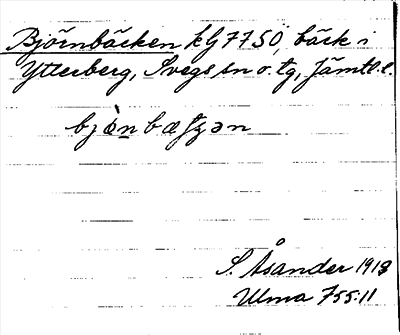 Björnbäcken kG7750, bäck i
Ytterberg, Svegs sn o. tg, Jämtl.l.
S. Åsander 1918
Ulma 755:11